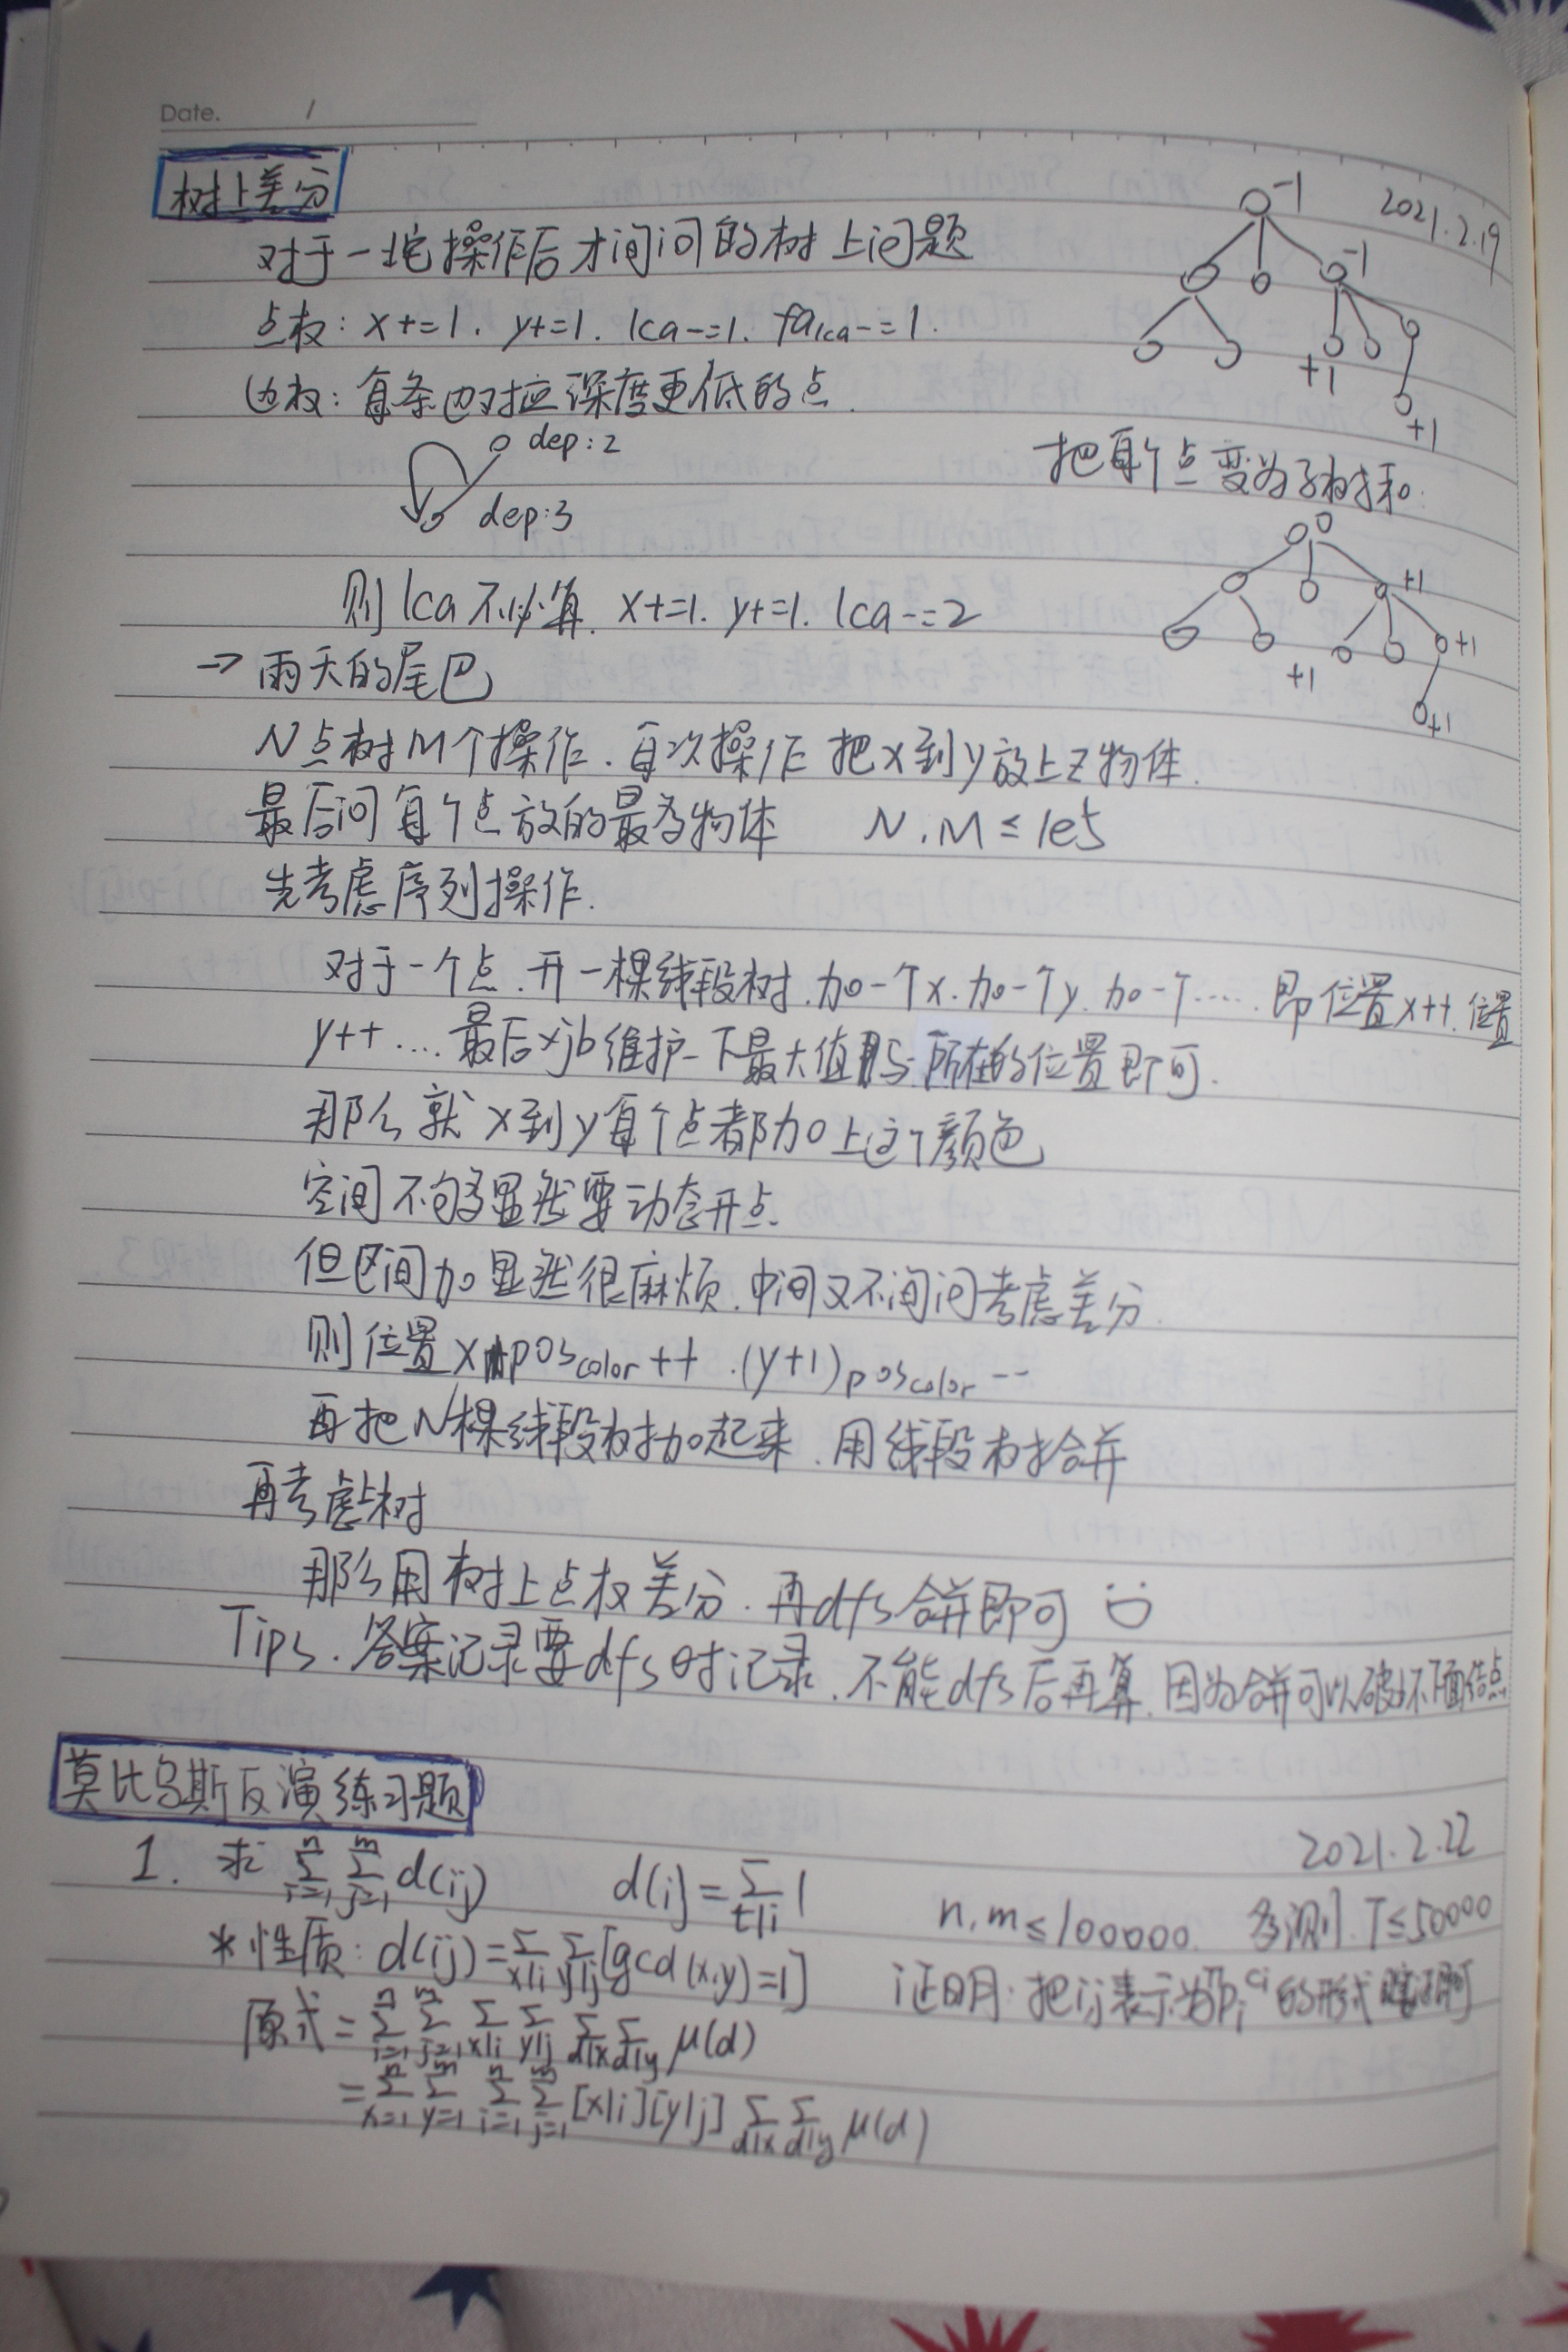 Date. /
树上差分
2021.2.19
对于一坨操作后才询问的树上问题
点权: x+=1. y+=1. lca-=1. fa_lca-=1.
边权: 每条边对应深度更低的点.
-1
-1
+1
+1
dep:2
dep:3
把每个点变为子树和.
0
+1
+1
+1
+1
则lca不必算. x+=1. y+=1. lca-=2
→ 雨天的尾巴
N点树M个操作. 每次操作 把x到y放上z物体.
最后问每个点放的最多物体 N.M≤1e5
先考虑序列操作.
对于一个点. 开一棵线段树. 加一个x. 加一个y. 加一个..... 即位置x++. 位置
y++ .... 最后xjb维护一下最大值与所在的位置即可.
那么就x到y每个点都加上这个颜色
空间不够显然要动态开点.
但区间加显然很麻烦. 中间又不询问考虑差分.
则位置x pos_color++ .(y+1)pos_color--
再把N棵线段树加起来. 用线段树合并
再考虑树
那么用树上点权差分. 再dfs合并即可
Tips. 答案记录要dfs时记录. 不能dfs后再算. 因为合并可以破坏下面结点
莫比乌斯反演练习题
2021.2.22
1. 求 ∑_{i=1}^{n} ∑_{j=1}^{m} d(ij) d(i)=∑_{t|i} 1 n,m≤100000. 多测. T≤50000
*性质: d(ij)=∑_{x|i} ∑_{y|j} [gcd(x,y)=1] 证明: 把i,j表示为∏p_i^{c_i}的形式
原式=∑_{i=1}^{n} ∑_{j=1}^{m} ∑_{x|i} ∑_{y|j} ∑_{d|x} ∑_{d|y} μ(d)
=∑_{x=1}^{n} ∑_{y=1}^{m} ∑_{i=1}^{n} ∑_{j=1}^{m} [x|i][y|j] ∑_{d|x} ∑_{d|y} μ(d)